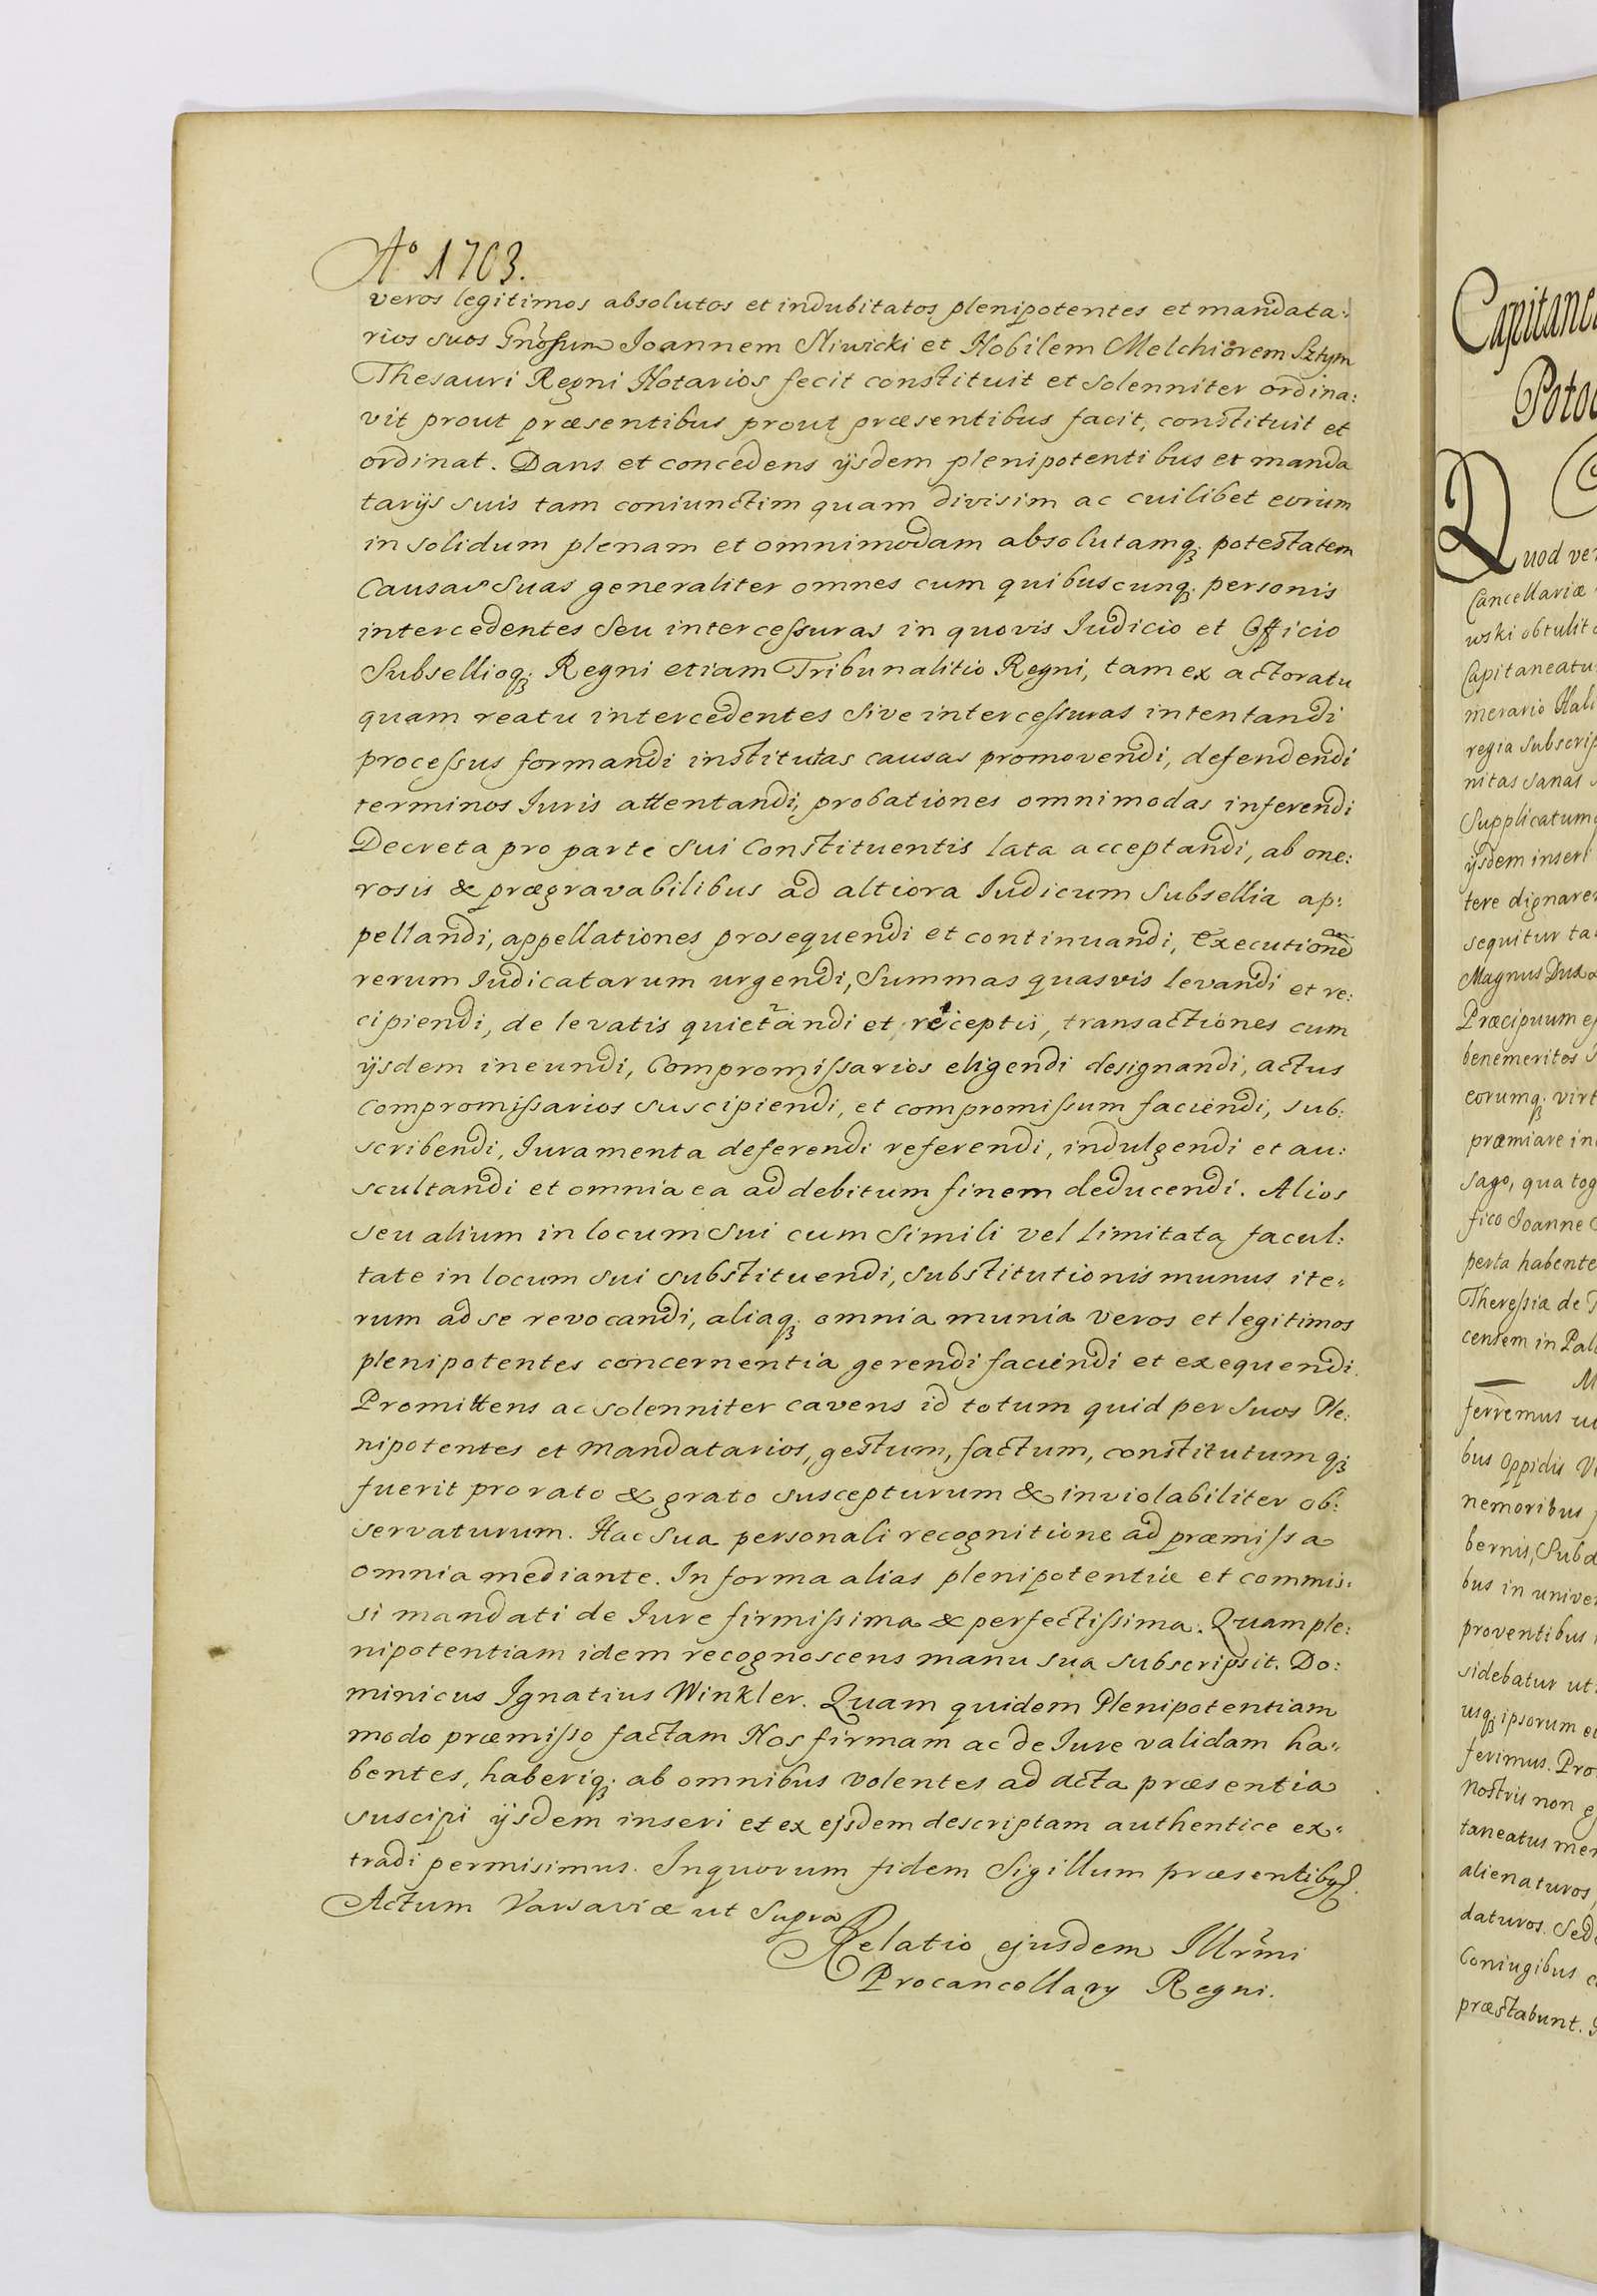 Aº 1703.
veros legitimos absolutos et indubitatos plenipotentes et mandata:
rios suos Gnosum Joannem Niwicki et Nobilem Melchiorem Sztym
Thesauri Regni Notarios fecit constituit et solenniter ordina:
vit prout præsentibus prout præsentibus facit, constituit et
ordinat. Dans et concedens ijsdem plenipotentibus et manda
tarijs suis tam coniunctim quam divisim ac cuilibet eorum
in solidum plenam et omnimodam absolutamq; potestatem
Causas Suas generaliter omnes cum quibuscunq; personis
intercedentes Seu intercessuras in quovis Iudicio et Officio
Subsellioq; Regni etiam Tribunalitio Regni, tam ex actoratu
quam reatu intercedentes Sive intercessuras intentandi
processus formandi institutas causas promovendi, defendendi
terminos Iuris attentandi, probationes omnimodas inferendi
Decreta pro parte Sui Constituentis lata acceptandi, ab one:
rosis & prægravabilibus ad altiora Iudicum Subsellia ap:
pellandi, appellationes prosequendi et continuandi, Executione
rerum Iudicatarum urgendi, Summas quasvis levandi et re:
cipiendi, de levatis quietandi et receptis, transactiones cum
ijsdem ineundi, Compromissarios eligendi designandi, actus
Compromissarios suscipiendi, et compromissum faciendi, sub:
scribendi, Iuramenta deferendi referendi, indulgendi et au:
scultandi et omnia ea ad debitum finem deducendi. Alios
seu alium in locum Sui cum Simili vel limitata facul:
tate in locum sui substituendi, substitutionis munus ite:
rum ad se revocandi, aliaq; omnia munia veros et legitimos
plenipotentes concernentia gerendi faciendi et exequendi.
Promittens ac solenniter cavens id totum quid per Suos Ple:
nipotentes et Mandatarios, gestum, factum, constitutumq;
fuerit pro rato & grato suscepturum & inviolabiliter ob:
servaturum. Hac Sua personali recognitione ad præmissa
omnia mediante. In forma alias plenipotentiæ et commis:
si mandati de Iure firmissima & perfectissima. Quam ple:
nipotentiam idem recognoscens manu sua subscripsit. Do:
minicus Ignatius Winkler. Quam quidem Plenipotentiam
modo præmisso factam Nos firmam ac de Iure validam ha:
bentes, haberiq; ab omnibus volentes ad acta præsentia
suscipi ijsdem inseri et ex ejsdem descriptam authentice ex:
tradi permisimus. In quorum fidem Sigillum præsentibus.
Actum Varsaviæ ut Supra
Relatio ejusdem Illrmi
Procancellary Regni.
Quod
Cancellariæ
wski obtulit
Capitaneatu
merario Hali
regia subscrip
nitas sanas
Supplicatum
ijsdem inseri
tere dignare
sequitur ta
Magnus Dux
Præcipuum
benemeritos
eorumq; virt
præmiare in
sago, qua tog
fico Joanne
perta habente
Theressia de
centem in Pal
ferremus
bus Oppidis
nemoribus
bernis, Sub
bus in univer
proventibus
sidebatur ut
usq; ipsorum
ferimus. Pro
Nostris non
taneatus
alienaturos,
daturos. Sed
Coniugibus
præstabunt.